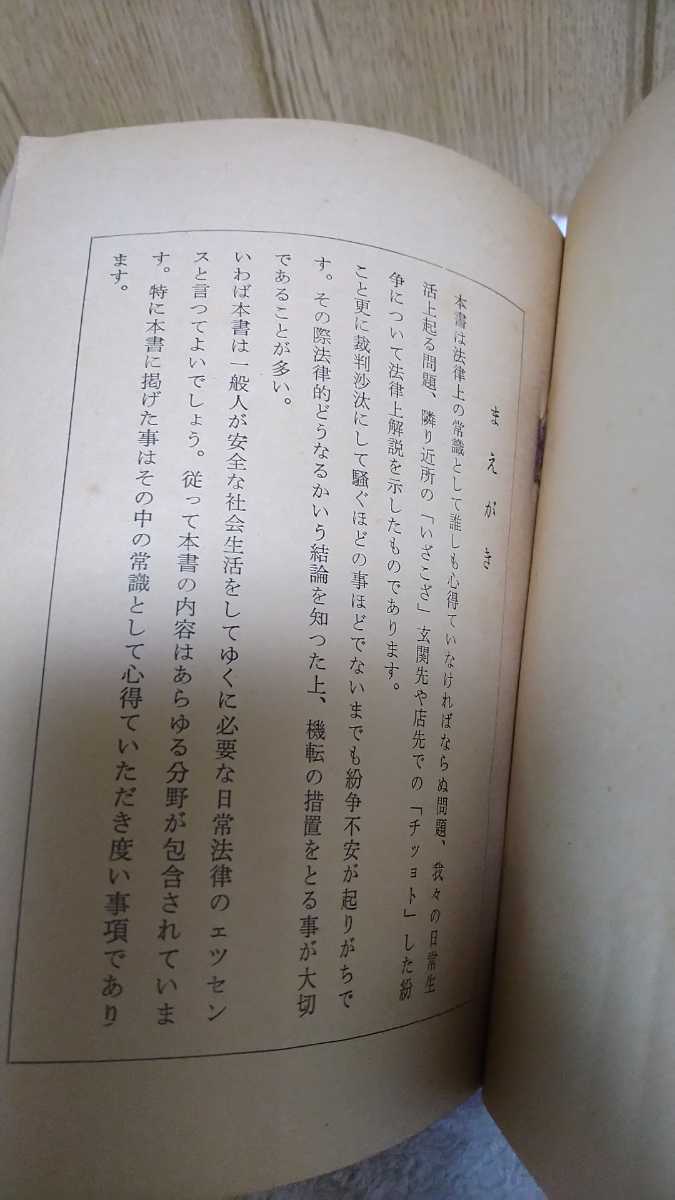 まえがき
本書は法律上の常識として誰しも心得ていなければならぬ問題、我々の日常生
活上起る問題、隣り近所の「いざこざ」玄関先や店先での「チョット」した紛
争について法律上解説を示したものであります。
こと更に裁判沙汰にして騒ぐほどの事ほどでないまでも紛争不安が起りがちで
す。その際法律的どうなるかいう結論を知つた上、機転の措置をとる事が大切
であることが多い。
いわば本書は一般人が安全な社会生活をしてゆくに必要な日常法律のエツセン
スと言つてよいでしょう。従って本書の内容はあらゆる分野が包含されていま
す。特に本書に掲げた事はその中の常識として心得ていただき度い事項であり
ます。